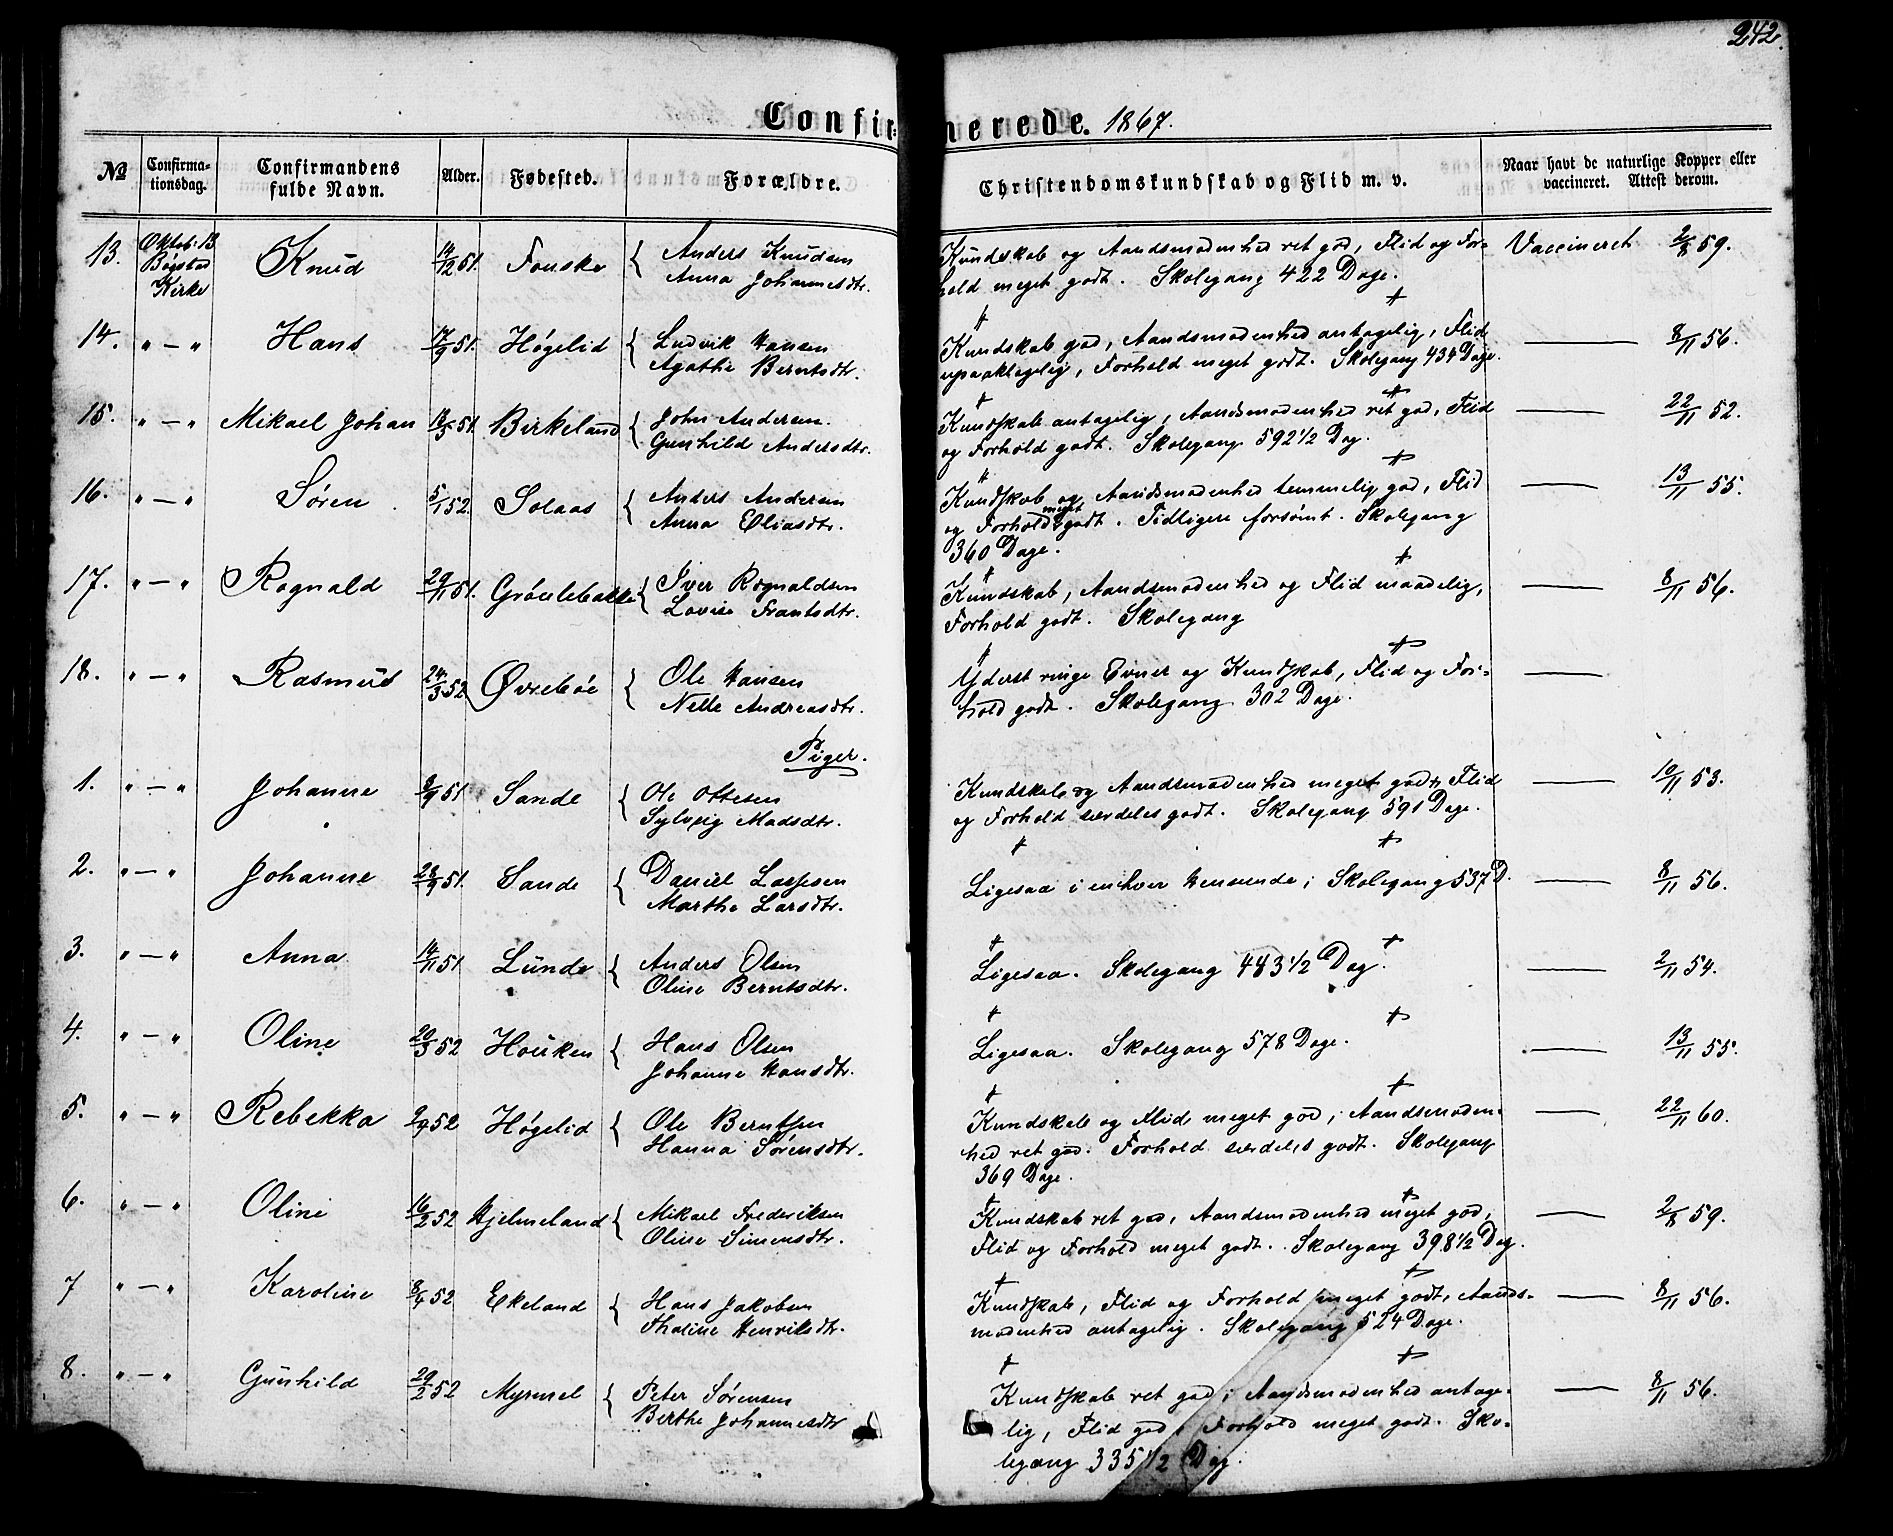 242.
Confirmerede. 1867.
№ Confirmationsdag. Confirmandens fulde Navn. Alder. Fødested. Forældre. Christendomskundskab og Flid m. v. Naar havt de naturlige Kopper eller vaccineret. Attest derom.
13. Oktob. 13 Knud 14/12 51. Fonske { Anders Knudsen Kundskab og Aandsmodenhed ret god, Flid og For- Vaccineret 2/8 59.
Kirke Anna Johannesdtr. hold meget godt. Skolegang 422 Dage.
14. " — " Hans 17/9 51. Høgelid { Ludvik Hansen Kundskab god, Aandsmodenhed antagelig, Flid — 8/11 56.
Agathe Berntsdtr. upaaklagelig, Forhold meget godt. Skolegang 434 Dage.
15. " — " Mikael Johan 51. Birkeland { John Andersen. Kundskab antagelig, Aandsmodenhed ret god, Flid — 22/11 52.
Gunhild Andersdtr. og Forhold godt. Skolegang 592 1/2 Dag.
16. " — " Søren 5/1 52. Solaas { Anders Andersen Kundskab og Aandsmodenhed temmelig god, Flid — 13/11 55.
Anna Eliasdtr. og Forhold meget godt. Tidligere forsømt. Skolegang
360 Dage.
17. " — " Rognald 29/11 51. { Iver Rognaldsen Kundskab, Aandsmodenhed og Flid maadelig, — 8/11 56.
Lovise Frantsdtr. Forhold godt. Skolegang
18. " — " Rasmus 24/3 52 Øvrebøe { Ole Hansen Yderst ringe Evner og Kundskab, Flid og For- —
Nelle Andreasdtr. hold godt. Skolegang 302 Dage.
Piger.
1. " — " Johanne 8/9 51 Sande { Ole Ottesen Kundskab og Aandsmodenhed meget god, Flid — 10/11 53.
Sylveig Madsdtr. og Forhold særdeles godt. Skolegang 591 Dage.
2. " — " Johanne 28/9 51. Sande { Daniel Lassesen Ligesaa i enhver Henseende; Skolegang 537 D. — 8/11 56.
Marthe Larsdtr.
3. " — " Anna 14/11 51 Lunde { Anders Olsen Ligesaa. Skolegang 443 1/2 Dag. — 2/11 54.
Oline Berntsdtr.
4. " — " Oline 20/3 52 Houken { Hans Olsen Ligesaa. Skolegang 578 Dage. — 13/11 55.
Johanne Hansdtr.
5. " — " Rebekka 2/9 52 Høgelid { Ole Berntsen Kundskab og Flid meget god, Aandsmoden- — 22/11 60.
Hanna Sørensdtr. hed ret god. Forhold særdeles godt. Skolegang
369 Dage.
6. " — " Oline 16/2 52 Hjelmeland { Mikael Frederiksen Kundskab ret god, Aandsmodenhed meget god, — 2/8 59.
Oline Simensdtr. Flid og Forhold meget godt. Skolegang 398 1/2 Dag.
7 " — " Karoline 8/4 52 Ekeland { Hans Jakobsen Kundskab, Flid og Forhold meget godt, Aands- — 8/11 56.
Thaline Henriksdtr. modenhed antagelig. Skolegang 524 Dage.
8. " — " Gunhild 29/2 52 Myrmel { Peter Sørensen Kundskab ret god; Aandsmodenhed antage- — 8/11 56.
Berthe Johannesdtr lig, Flid god, Forhold meget godt. Sko-
legang 335 1/2 Dag.